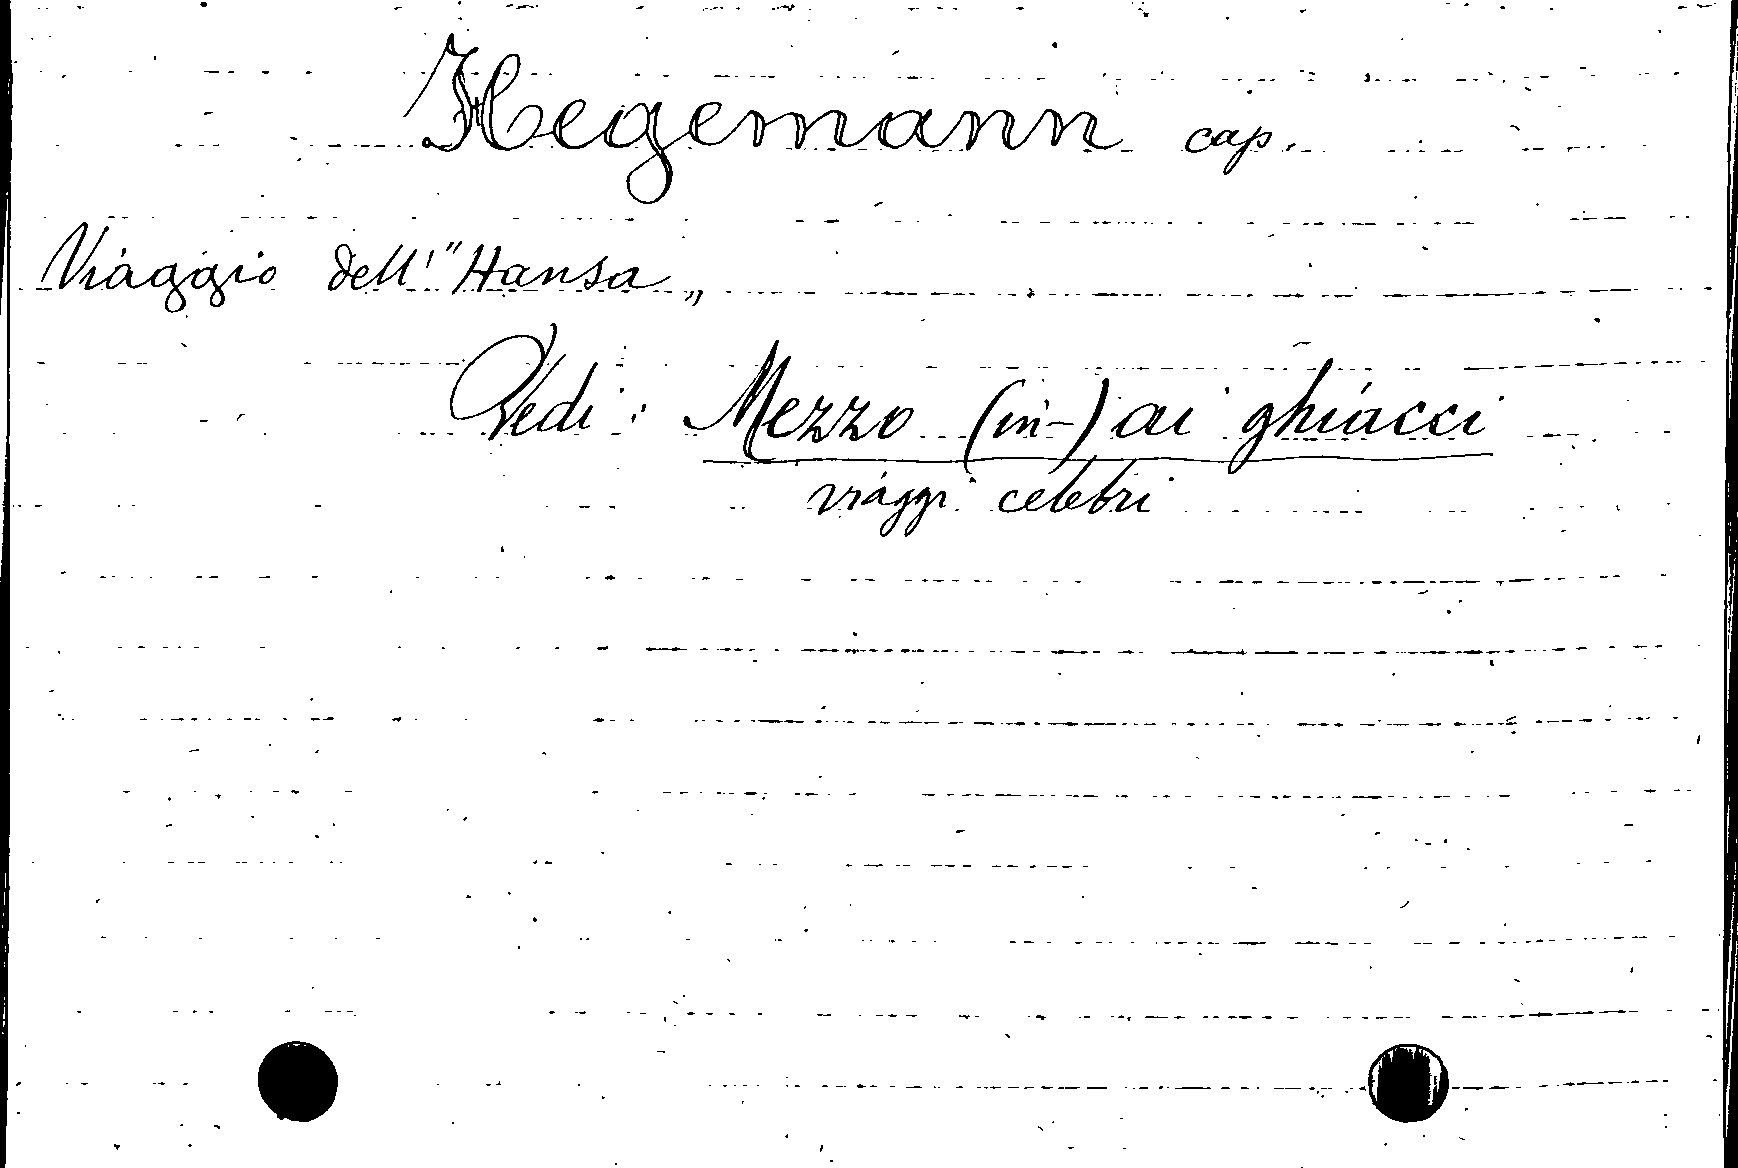 Hegemann cap.
Viaggio dell' "Hansa„
Vedi: Mezzo (in-) ai ghiacci
viaggi celebri